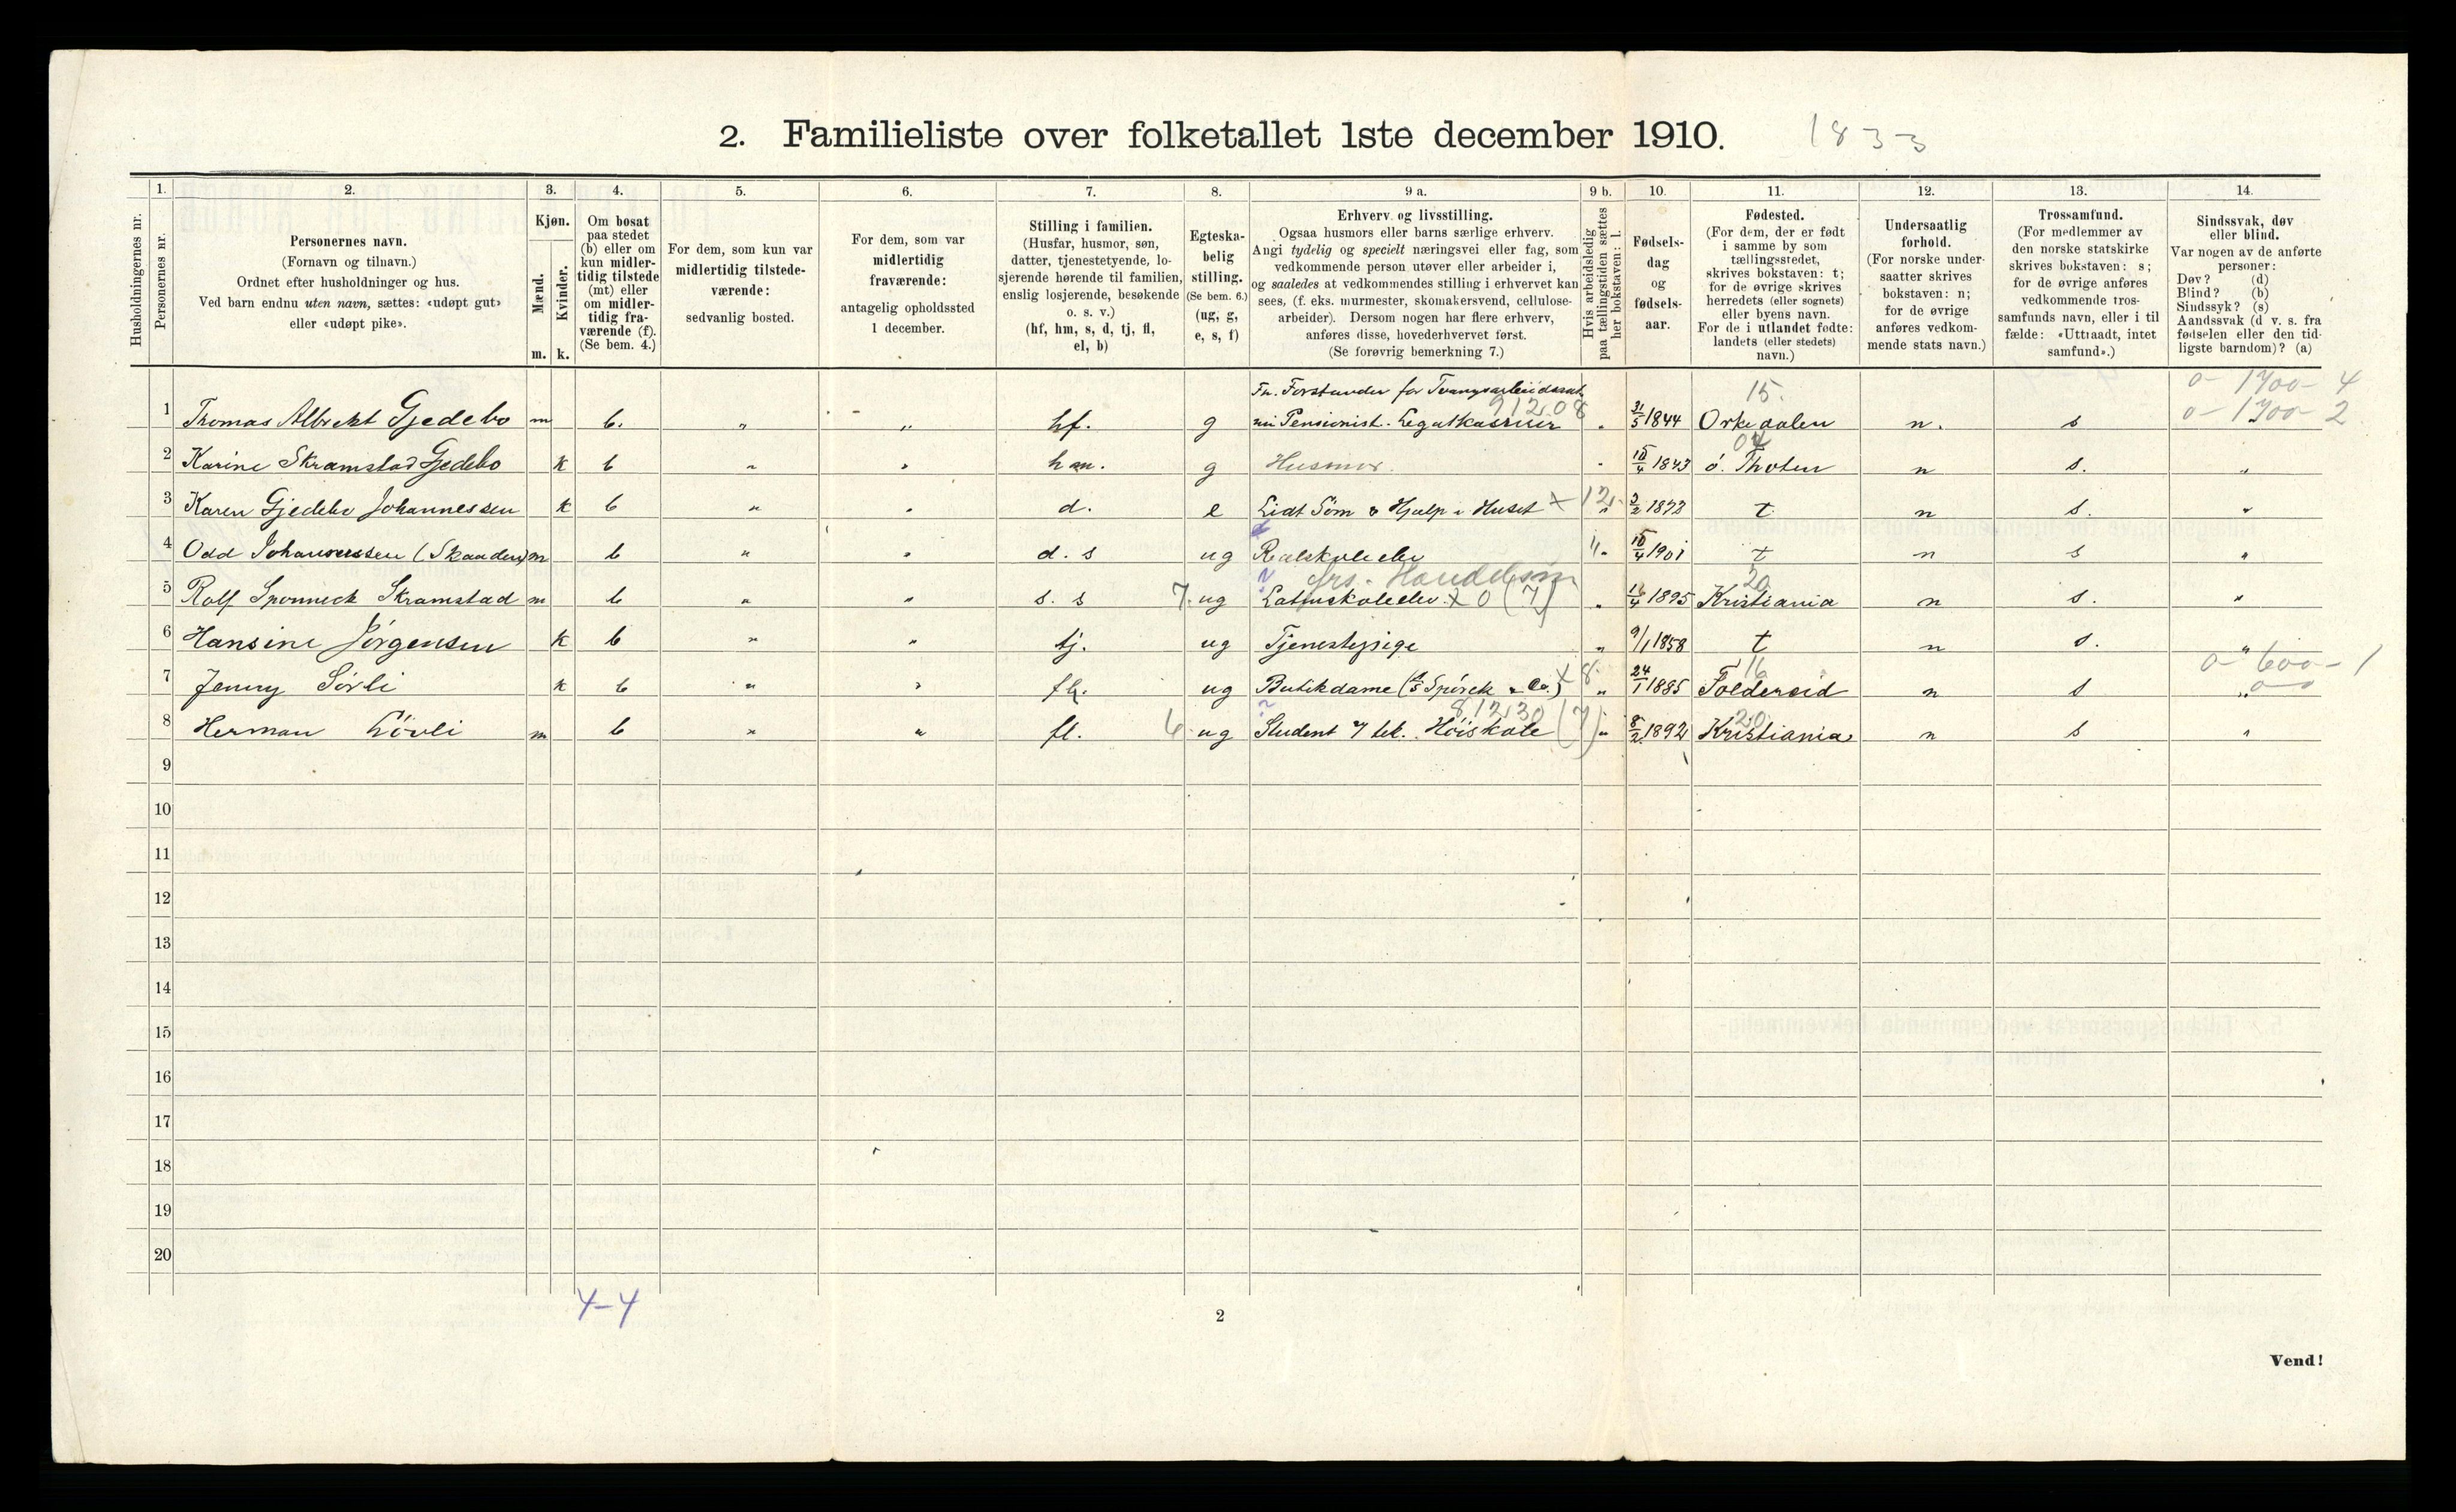 2. Familieliste over folketallet 1ste december 1910. 1833
Husholdningernes nr.
1.
Personernes nr.
2.
Personernes navn.
(Fornavn og tilnavn.)
Ordnet efter husholdninger og hus.
Ved barn endnu uten navn, sættes: «udøpt gut»
eller «udøpt pike».
3.
Kjøn.
Mænd.
Kvinder.
m. k.
4.
Om bosat
paa stedet
(b) eller om
kun midler-
tidig tilstede
(mt) eller
om midler-
tidig fra-
værende (f).
(Se bem. 4.)
5.
For dem, som kun var
midlertidig tilstede-
værende:
sedvanlig bosted.
6.
For dem, som var
midlertidig
fraværende:
antagelig opholdssted
1 december.
7.
Stilling i familien.
(Husfar, husmor, søn,
datter, tjenestetyende, lo-
sjerende hørende til familien,
enslig losjerende, besøkende
o. s. v.)
(hf, hm, s, d, tj, fl,
el, b)
8.
Egteska-
belig
stilling.
(Se bem. 6.)
(ug, g,
e, s, f)
9 a.
Erhverv og livsstilling.
Ogsaa husmors eller barns særlige erhverv.
Angi tydelig og specielt næringsvei eller fag, som
vedkommende person utøver eller arbeider i,
og saaledes at vedkommendes stilling i erhvervet kan
sees, (f. eks. murmester, skomakersvend, cellulose-
arbeider). Dersom nogen har flere erhverv,
anføres disse, hovederhvervet først.
(Se forøvrig bemerkning 7.)
9 b.
Hvis arbeidsledig
paa tællingstiden sættes
her bokstaven: l.
10.
Fødsels-
dag
og
fødsels-
aar.
11.
Fødested.
(For dem, der er født
i samme by som
tællingsstedet,
skrives bokstaven: t;
for de øvrige skrives
herredets (eller sognets)
eller byens navn.
For de i utlandet fødte:
landets (eller stedets)
navn.)
12.
Undersaatlig
forhold.
(For norske under-
saatter skrives
bokstaven: n;
for de øvrige
anføres vedkom-
mende stats navn.)
13.
Trossamfund.
(For medlemmer av
den norske statskirke
skrives bokstaven: s;
for de øvrige anføres
vedkommende tros-
samfunds navn, eller i til
fælde: «Uttraadt, intet
samfund».)
14.
Sindssvak, døv
eller blind.
Var nogen av de anførte
personer:
Døv? (d)
Blind? (b)
Sindssyk? (s)
Aandssvak (d v. s. fra
fødselen eller den tid-
ligste barndom)? (a)
Fn. Forstander for Tvangsarbeidsanst. 15. 0-1700-4
91208 0-1700-2
1 Thomas Albrekt Gjedebo m b. " " hf. g nu Pensionist. Legatkasserer " 31/5 1844 Orkedalen n. s
04
2 Karine Skramstad Gjedebo k b " " hm. g Husmor. " 10/4 1843 ö. Thoten n s. "
3 Karen Gjedebo Johannessen k b " " d. e Lidt Søm & Hjælp i Huset x 12. " 2/2 1873 t n s. "
4 Odd Johannessen (Skaaden) m b " " d. s ug Realskoleelev " 10/4 1901 t n s "
Handelsm 20
5 Rolf Sponneck Skramstad m b " " s. s 7. ug Latinskoleelev. x 0 (7) " 16/4 1895 Kristiania n s. "
6 Hansine Jørgensen k b " " tj. ug Tjenestepige " 9/1 1858 t n s. "
x 8. 16 0-600-1
7 Jenny Sörli k b " " fl. ug Butikdame (A/S Spörck & Co.) " 24/1 1885 Foldereid n s "
81230 20
8 Herman Lövli m b " " fl. 6 ug Student v/ tek. Höiskole (7) " 8/2 1892 Kristiania n s "
9
10
11
12
13
14
15
16
17
18
19
20
4-4
2
Vend!